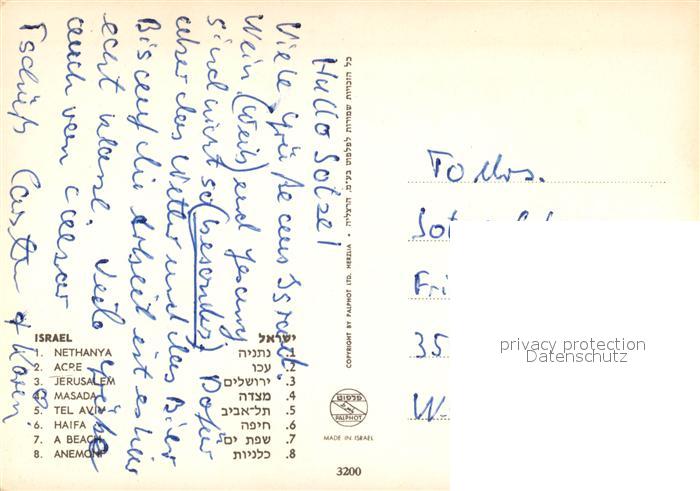 Hallo Sotzel!
Viele Grüße aus Israel.
Wein (Weib) und Gesang
sind nicht so (besonders). Dafür
aber das Wetter und das Bier
Bis auf die Arbeit ist es hier
echt klasse. Viele Grüße
auch von
Tschüß Karen.
כל הזכויות שמורות לפלפוט בע"מ, הרצליה • COPYRIGHT BY PALPHOT LTD. HERZLIA
ISRAEL ישראל
1. NETHANYA נתניה .1
2. ACRE עכו .2
3. JERUSALEM ירושלים .3
4. MASADA מצדה .4
5. TEL AVIV תל-אביב .5
6. HAIFA חיפה .6
7. A BEACH שפת ים .7
8. ANEMONY כלניות .8
פלפוט
PALPHOT
MADE IN ISRAEL
3200
To Mrs.
Fri
35
W
privacy protection
Datenschutz